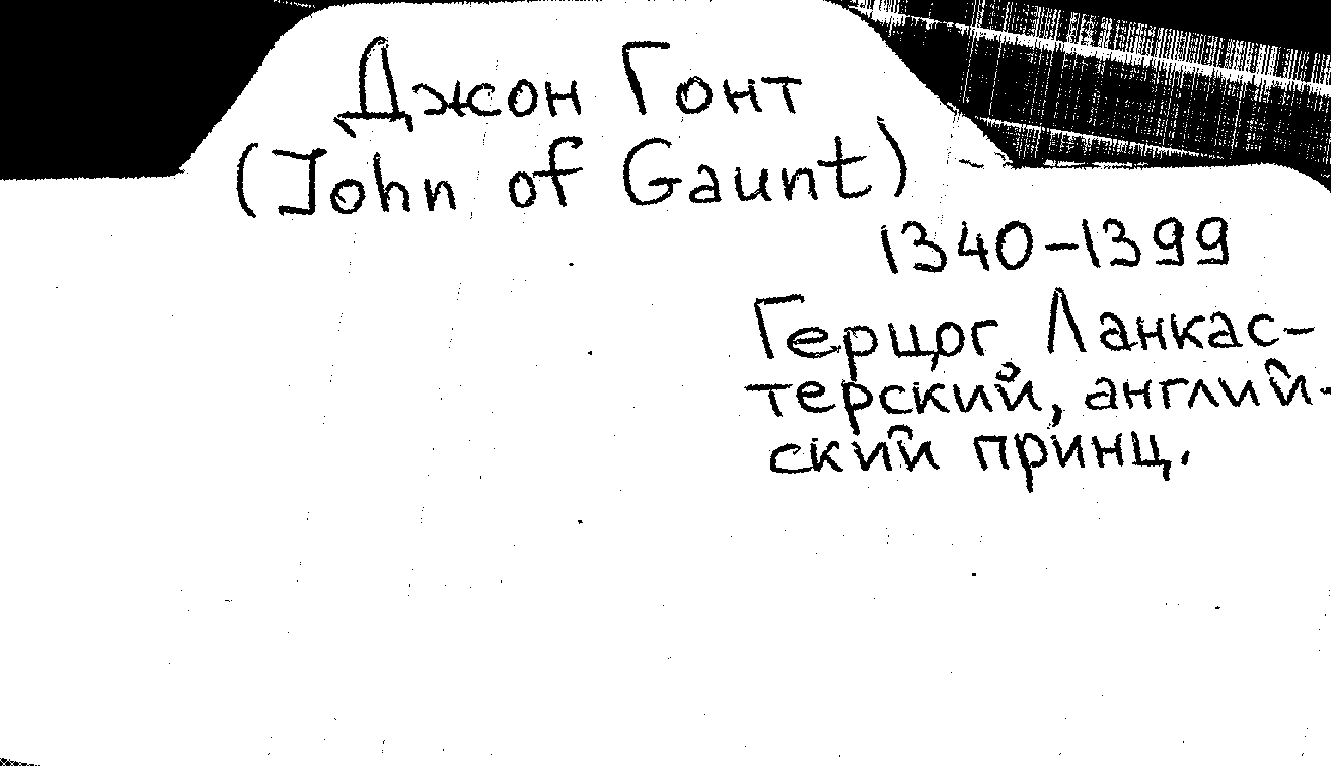 Джон Гонт
(John of Gaunt)
1340-1399
Герцог Ланкас-
терский, англий-
ский принц.